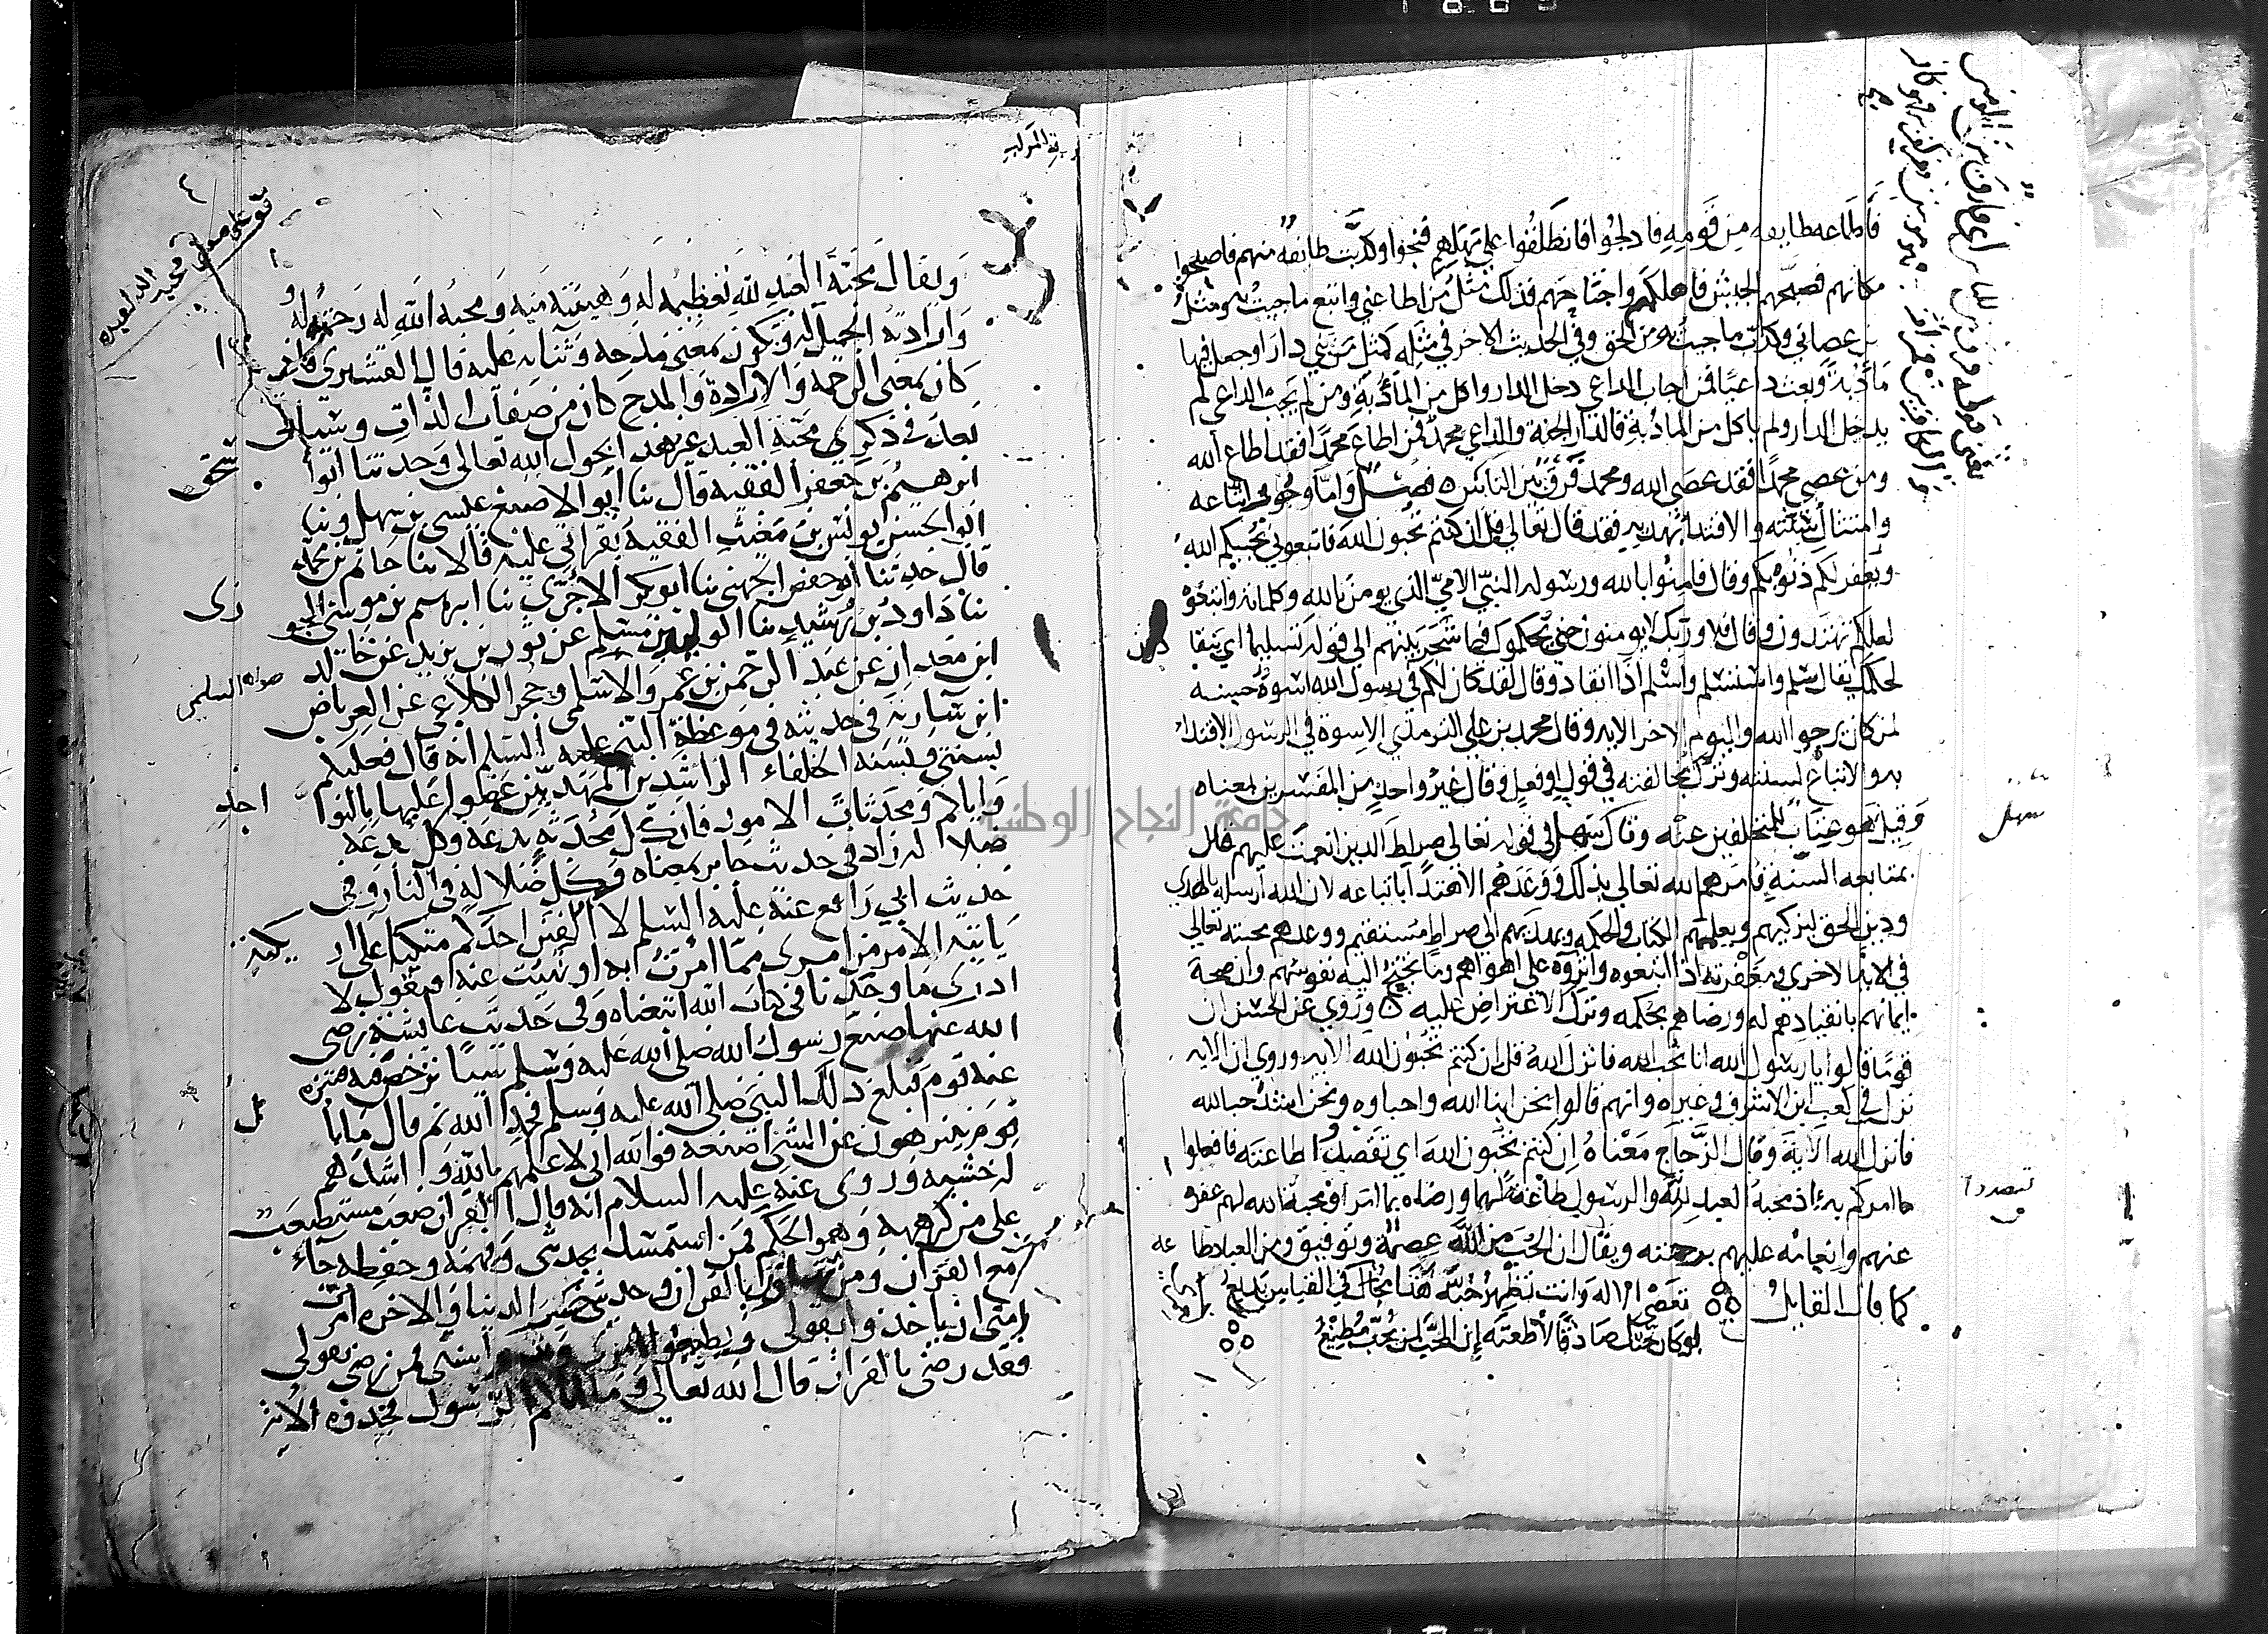 فاطاعه طايفه من قومه فادلجوا فانطلقوا على مهلهم فنجوا وكذبت طائفة منهم فاصبحوا
مكانهم فصبحهم الجيش فاهلكهم واجتاحهم فذلك مثل من اطاعني واتبع ما جيت به ومثل
من عصاني وكذب ما جيت به من الحق وفي الحديث الاخر في مثله كمثل من بني دارا وجعل فيها
مأدبة وبعث داعيا فمن اجاب الداعي دخل الدار واكل من المأدبة ومن لم يجب الداعي لم
يدخل الدار ولم ياكل من المادبة فالدار الجنة والداعي محمد فمن اطاع محمدا فقد اطاع الله
ومن عصى محمدا فقد عصى الله ومحمد فرق بين الناس ٥ فصل واما وجوب اتباعه
وامتثال سنته والاقتدا بهديه فقد قال تعالى قل ان كنتم تحبون الله فاتبعوني يحببكم الله
ويغفر لكم ذنوبكم وقال فامنوا بالله ورسوله النبي الامي الذي يومن بالله وكلماته واتبعوه
لعلكم تهتدون وقال فلا وربك لا يومنون حتى يحكموك فيما شجر بينهم الى قوله تسليما اي ينقا
لحكمك يقال سلم واستسلم واسلم اذا انقاد وقال لقد كان لكم في رسول الله اسوة حسنه
لمن كان يرجوا الله واليوم الاخر الايه وقال محمد بن علي الترمذي الاسوة في الرسول الاقتدا
به والاتباع لسنته وترك مخالفته في قول او فعل وقال غير واحد من المفسرين بمعناه
وقيل هو عتاب للمتخلفين عنه وقال سهل في قوله تعالى صراط الذين انعمت عليهم قال
بمتابعه السنة فامرهم الله تعالى بذلك ووعدهم الاهتدا باتباعه لان الله ارسله بالهدى
ودين الحق ليزكيهم ويعلمهم الكتاب والحكمه ويهديهم الى صراط مستقيم ووعدهم محبته تعالى
في الاية الاخرى ومغفرته اذا اتبعوه واثروه على اهواهم وما تجنح اليه نفوسهم وان صحة
ايمانهم بانقيادهم له ورضاهم بحكمه وترك الاعتراض عليه ٥ وروي عن الحسن ان
قوما قالوا يا رسول الله انا نحب الله فانزل الله قل ان كنتم تحبون الله الايه وروي ان الايه
نزلت في كعب ابن الاشرف وغيره وانهم قالوا نحن ابنا الله واحباوه ونحن اشد حبا لله
فانزل الله الاية وقال الزجاج معناه ان كنتم تحبون الله اي تقصدوا طاعته فافعلوا
ما امركم به اذ محبة العبد لله والرسول طاعة لهما ورضاه بما امرا ومحبة الله لهم عفوه
عنهم وانعامه عليهم برحمته ويقال ان الحب من الله عصمة وتوفيق ومن العباد طا عه
كما قال القايل تعصي الاله وانت تظهر حبه هذا محال في القياس بديع
لو كان حبك صادقا لاطعته ان المحب لمن يحب مطيع
سهل
ويقال محبة العبد لله تعظيمه له وهيبته منه ومحبة الله له رحمته له
وارادته الجميل له وتكون بمعنى مدحه وثنائه عليه قال القشيري فاذا
كان بمعنى الرحمه والارادة والمدح كان من صفات الذات وسياتى
بعد في ذكر محبة العبد غير هذا بحول الله تعالى وحدثنا ابوا اسحق
ابرهيم بن جعفر الفقيه قال نا ابو الاصبغ عيسى بن سهل ونا
ابو الحسن يونس بن مغيث الفقيه بقراتي عليه قالا نا حاتم بن محمد
قال حدثنا ابو حفص الجهني نا ابو بكر الاجري نا ابرهيم بن موسى الجو زى
نا داود بن رشيد نا الوليد بن مسلم عن ثور بن يزيد عن خالد
ابن معدان عن عبد الرحمن بن عمرو الاسلمي وحجر الكلاعي عن العرباض
صوابه السلمي
ابن سارية في حديثه في موعظة النبي عليه السلم انه قال فعليكم
بسنتي وسنه الخلفاء الراشدين المهديين عضوا عليها بالنوا اجذ
واياكم ومحدثات الامور فان كل محدثة بدعة وكل بدعة
ضلالة زاد في حديث جابر بمعناه وكل ضلالة في النار وفي
حديث ابي رافع عنه عليه السلم لا الفين احدكم متكيا على ار يكته
ياتيه الامر من امري مما امرت به او نهيت عنه فيقول لا
ادري ما وجدنا في كتاب الله اتبعناه وفي حديث عايشة رضي
الله عنها صنع رسول الله صلى الله عليه وسلم شيا ترخص فيه فتنزه
عنه قوم فبلغ ذلك النبي صلى الله عليه وسلم فحمد الله ثم قال ما با ل
قوم يتنزهون عن الشي اصنعه فوالله اني لاعلمهم بالله واشدهم
له خشيه وروي عنه عليه السلام انه قال القران صعب مستصعب
على من كرهه وهو الحكم فمن استمسك بحديثي وفهمه وحفظه جاء
مع القران ومن تهاون بالقران وحديثي خسر الدنيا والاخره امرت
امتي ان ياخذوا بقولي ويطيعوا امري ويتبعوا سنتي فمن رضي بقولي
فقد رضى بالقران قال الله تعالى وما اتاكم الرسول فخذوه الاية
جامعة النجاح الوطنية